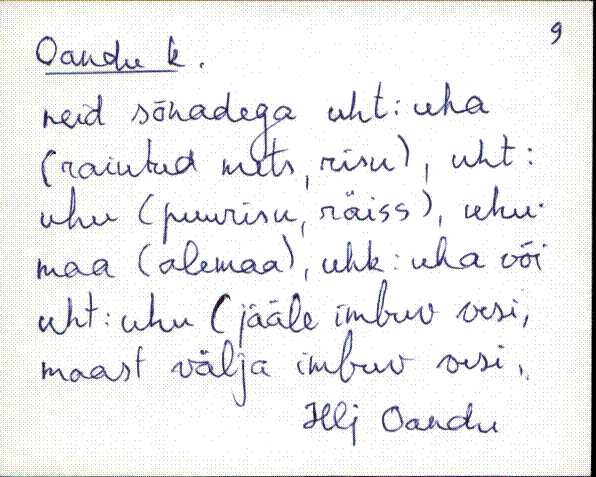 9
Oandu k.
neid sõnadega uht : uha
(raiutud mets, risu), uht :
uhu (puurisu, räiss), uhu-
maa (alemaa), uhk : uha või
uht : uhu (jääle imbuv vesi,
maast välja imbuv vesi,
Hlj Oandu